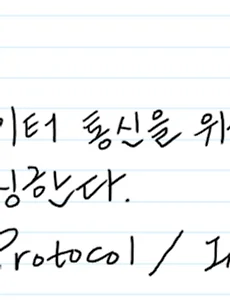 이터 통신을 위
싱한다.
Protocol / I